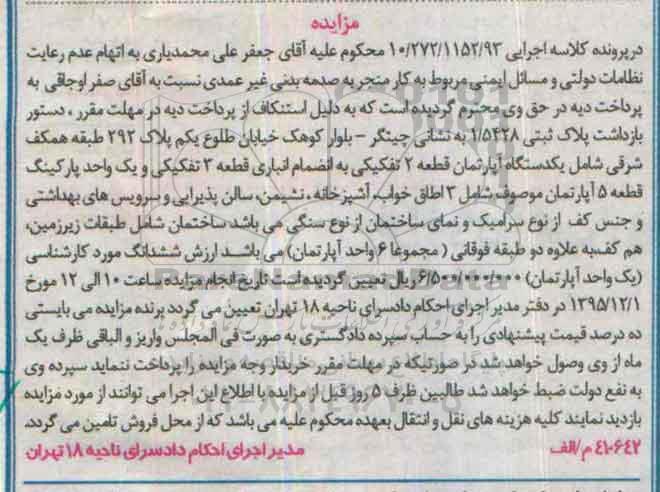 مزایده
در پرونده کلاسه اجرایی ۱۰/۲۷۲/۱۱۵۲/۹۳ محکوم علیه آقای جعفر علی محمدیاری به اتهام عدم رعایت
نظامات دولتی و مسائل ایمنی مربوط به کار منجر به صدمه بدنی غیر عمدی نسبت به آقای صفر اوجاقی به
پرداخت دیه در حق وی محترم گردیده است که به دلیل استنکاف از پرداخت دیه در مهلت مقرر ، دستور
بازداشت پلاک ثبتی ۱/۵۴۲۸ به نشانی چیتگر – بلوار کوهک خیابان طلوع یکم پلاک ۲۹۲ طبقه همکف
شرقی شامل یکدستگاه آپارتمان قطعه ۲ تفکیکی به انضمام انباری قطعه ۳ تفکیکی و یک واحد پارکینگ
قطعه ۵ آپارتمان موصوف شامل ۳ اطاق خواب، آشپزخانه ، نشیمن، سالن پذیرایی و سرویس های بهداشتی
و جنس کف از نوع سرامیک و نمای ساختمان از نوع سنگی می باشد ساختمان شامل طبقات زیرزمین،
هم کف به علاوه دو طبقه فوقانی ( مجموعا ۶ واحد آپارتمان) می باشد ارزش ششدانگ مورد کارشناسی
(یک واحد آپارتمان) ۶/۵۰۰/۰۰۰/۰۰۰ ریال تعیین گردیده است تاریخ انجام مزایده ساعت ۱۰ الی ۱۲ مورخ
۱۳۹۵/۱۲/۱ در دفتر مدیر اجرای احکام دادسرای ناحیه ۱۸ تهران تعیین می گردد برنده مزایده می بایستی
ده درصد قیمت پیشنهادی را به حساب سپرده دادگستری به صورت فی المجلس واریز و الباقی ظرف یک
ماه از وی وصول خواهد شد در صورتیکه در مهلت مقرر خریدار وجه مزایده را پرداخت ننماید سپرده وی
به نفع دولت ضبط خواهد شد طالبین ظرف ۵ روز قبل از مزایده با اطلاع این اجرا می توانند از مورد مزایده
بازدید نمایند کلیه هزینه های نقل و انتقال بعهده محکوم علیه می باشد که از محل فروش تامین می گردد.
۴۱۰۶۴۲ م/الف
مدیر اجرای احکام دادسرای ناحیه ۱۸ تهران